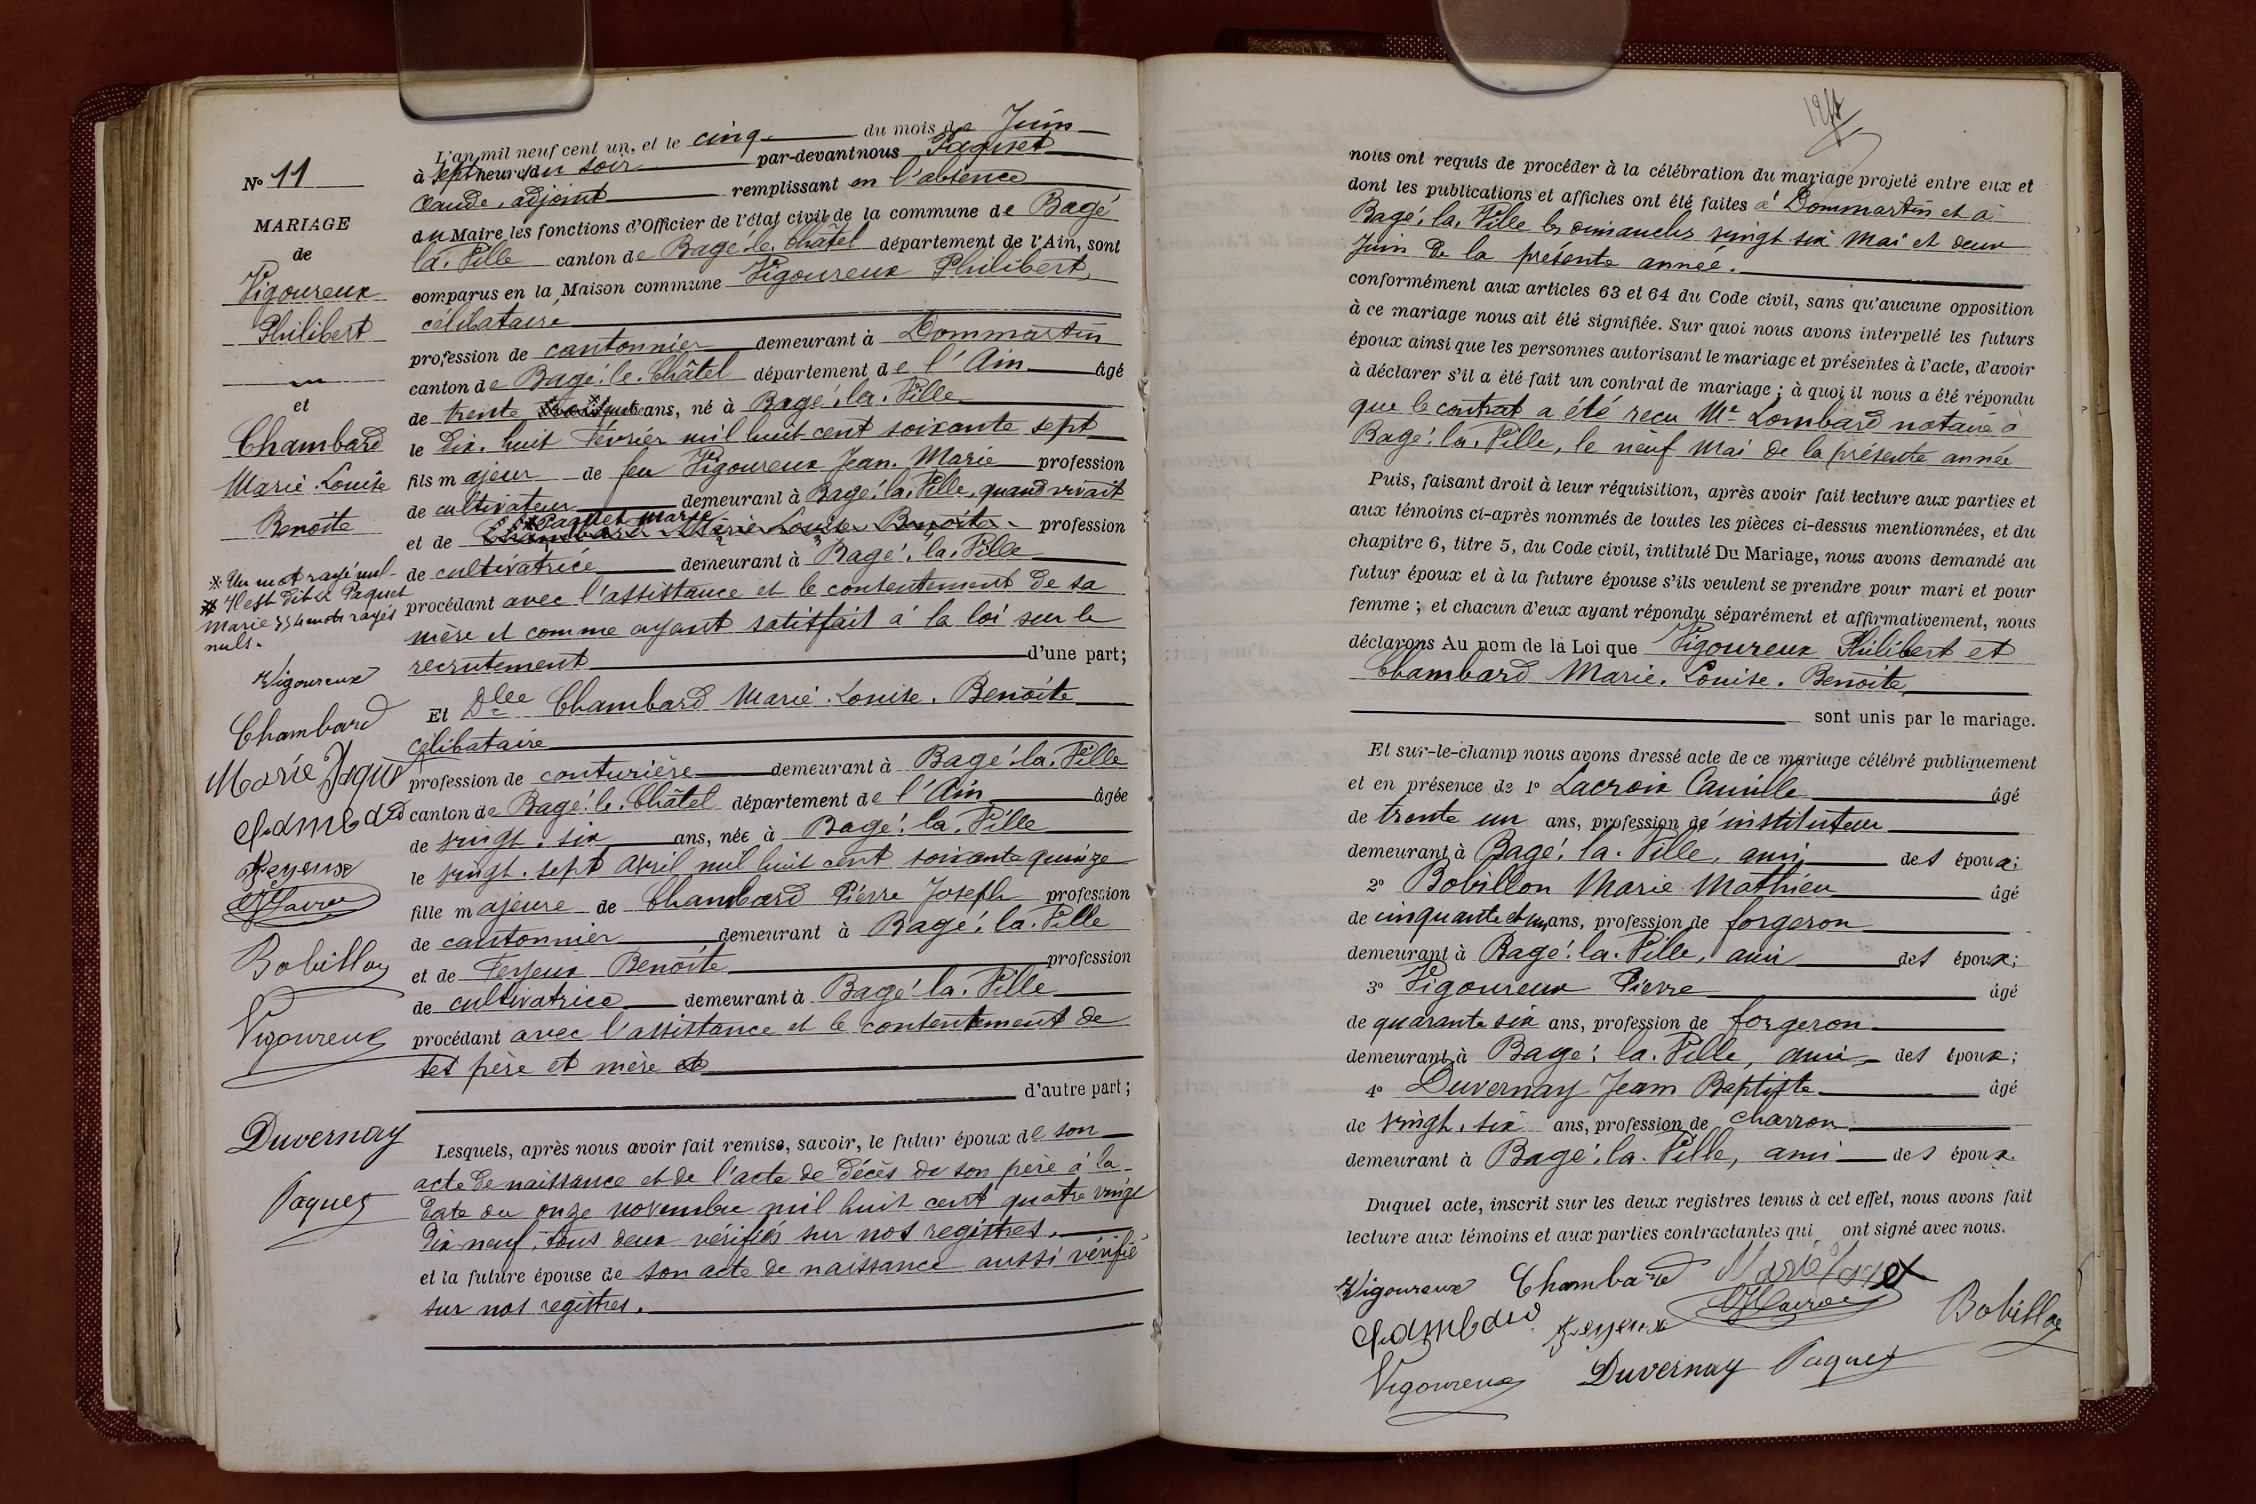 N° 11
MARIAGE
de
Vigoureux
Philibert
et
Chambard
Marie. Louise
Benoite
※ Un mot rayé nul-
※ Il est dit Paquet
Marie 4 mots rayés
nuls.
Vigoureux
Chambard
Marie Paquet
Chambard
Feyeux
Lacroix
Bobillon
Vigoureux
Duvernay
Paquet
L'an mil neuf cent un, et le cinq du mois de Juin
à sept heures du soir par-devant nous Paquet
Claude, adjoint remplissant en l'absence
du Maire les fonctions d'Officier de l'état civil de la commune de Bagé
la. Ville canton de Bagé. le. Châtel département de l'Ain, sont
comparus en la Maison commune Vigoureux Philibert,
célibataire
profession de cantonnier demeurant à Dommartin
canton de Bagé. le. Châtel département de l'Ain âgé
de trente quatre ans, né à Bagé. la. Ville
le dix. huit Février mil huit cent soixante sept
fils majeur de feu Vigoureux Jean. Marie profession
de cultivateur demeurant à Bagé. la. Ville, quand vivait
※ Paquet Marie
et de Chambard Marie Louise Benoite profession
de cultivatrice demeurant à Bagé. la. Ville
procédant avec l'assistance et le consentement de sa
mère et comme ayant satisfait à la loi sur le
recrutement d'une part;
Et Dlle Chambard Marie. Louise. Benoite
célibataire
profession de couturière demeurant à Bagé. la. Ville
canton de Bagé. le. Châtel département de l'Ain âgée
de vingt. six ans, née à Bagé. la. Ville
le vingt. sept avril mil huit cent soixante quinze
fille majeure de Chambard Pierre Joseph profession
de cantonnier demeurant à Bagé. la. Ville
et de Feyeux Benoite profession
de cultivatrice demeurant à Bagé. la. Ville
procédant avec l'assistance et le consentement de
ses père et mère et
d'autre part;
Lesquels, après nous avoir fait remise, savoir, le futur époux de son
acte de naissance et de l'acte de décès de son père à la
date du onze novembre mil huit cent quatre vingt
dix neuf, tous deux vérifiés sur nos registres.
et la future épouse de son acte de naissance aussi vérifié
sur nos registres.
nous ont requis de procéder à la célébration du mariage projeté entre eux et
dont les publications et affiches ont été faites à Dommartin et à
Bagé. la. Ville les dimanches vingt six Mai et deux
Juin de la présente année.
conformément aux articles 63 et 64 du Code civil, sans qu'aucune opposition
à ce mariage nous ait été signifiée. Sur quoi nous avons interpellé les futurs
époux ainsi que les personnes autorisant le mariage et présentes à l'acte, d'avoir
à déclarer s'il a été fait un contrat de mariage; à quoi il nous a été répondu
que le contrat a été reçu Me Lombard notaire à
Bagé. la. Ville, le neuf Mai de la présente année
Puis, faisant droit à leur réquisition, après avoir fait lecture aux parties et
aux témoins ci-après nommés de toutes les pièces ci-dessus mentionnées, et du
chapitre 6, titre 5, du Code civil, intitulé Du Mariage, nous avons demandé au
futur époux et à la future épouse s'ils veulent se prendre pour mari et pour
femme; et chacun d'eux ayant répondu séparément et affirmativement, nous
déclarons Au nom de la Loi que Vigoureux Philibert et
Chambard Marie. Louise. Benoite,
sont unis par le mariage.
Et sur-le-champ nous avons dressé acte de ce mariage célébré publiquement
et en présence de 1° Lacroix Camille âgé
de trente un ans, profession d'instituteur
demeurant à Bagé. la. Ville, ami des époux;
2° Bobillon Marie Mathieu âgé
de cinquante et un ans, profession de forgeron
demeurant à Bagé. la. Ville, ami des époux;
3° Vigoureux Pierre âgé
de quarante six ans, profession de forgeron
demeurant à Bagé. la. Ville, ami des époux;
4° Duvernay Jean Baptiste âgé
de vingt. six ans, profession de charron
demeurant à Bagé. la. Ville, ami des époux.
Duquel acte, inscrit sur les deux registres tenus à cet effet, nous avons fait
lecture aux témoins et aux parties contractantes qui ont signé avec nous.
Vigoureux Chambard Marie Paquet
Chambard Feyeux Lacroix Bobillon
Vigoureux Duvernay Paquet